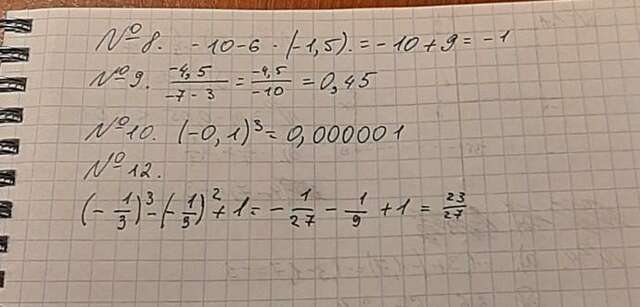 №8. -10-6·(-1,5).=-10+9=-1
№9. -4,5/-7-3=-4,5/-10=0,45
№10. (-0,1)³=0,000001
№12.
(-1/3)³-(-1/3)²+1=-1/27-1/9+1=23/27